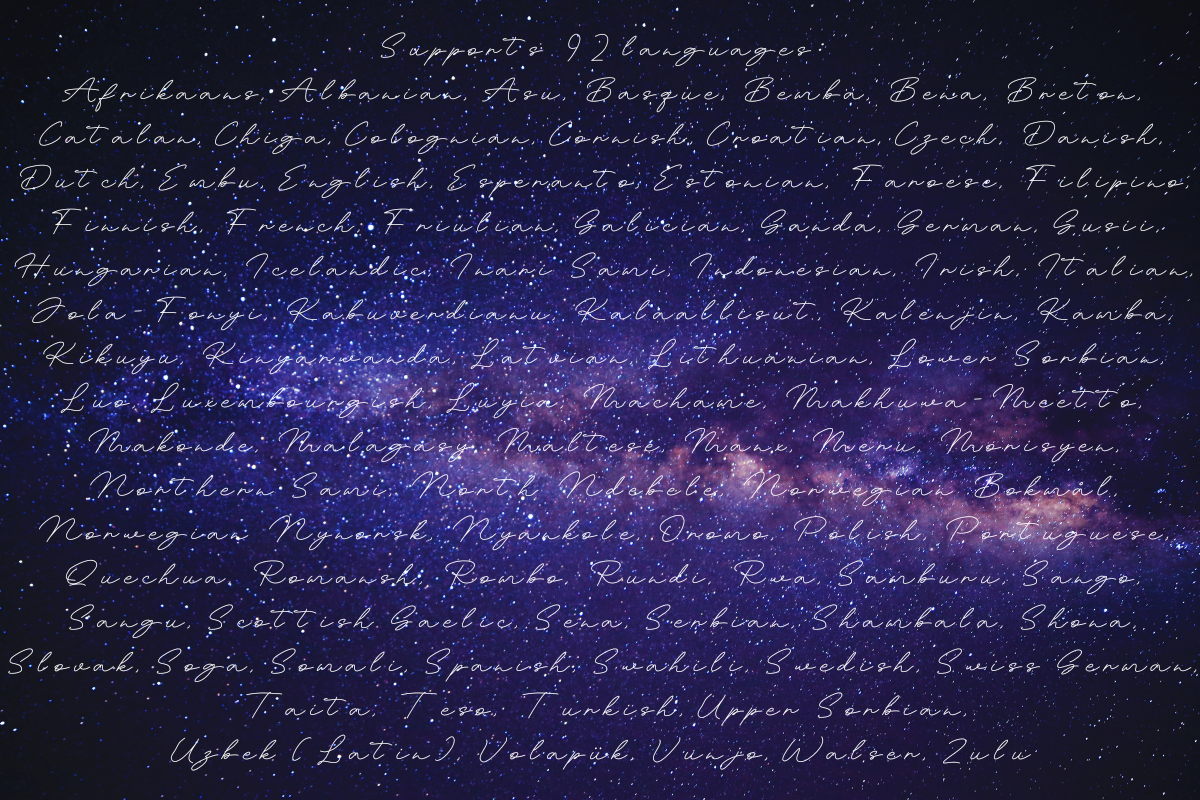 Supports 92 languages:
Afrikaans, Albanian, Asu, Basque, Bemba, Bena, Breton,
Catalan, Chiga, Colognian, Cornish, Croatian, Czech, Danish,
Dutch, Embu, English, Esperanto, Estonian, Faroese, Filipino,
Finnish, French, Friulian, Galician, Ganda, German, Gusii,
Hungarian, Icelandic, Inari Sami, Indonesian, Irish, Italian,
Jola-Fonyi, Kabuverdianu, Kalaallisut, Kalenjin, Kamba,
Kikuyu, Kinyarwanda, Latvian, Lithuanian, Lower Sorbian,
Luo, Luxembourgish, Luyia, Machame, Makhuwa-Meetto,
Makonde, Malagasy, Maltese, Manx, Meru, Morisyen,
Northern Sami, North Ndebele, Norwegian Bokmål,
Norwegian Nynorsk, Nyankole, Oromo, Polish, Portuguese,
Quechua, Romansh, Rombo, Rundi, Rwa, Samburu, Sango,
Sangu, Scottish Gaelic, Sena, Serbian, Shambala, Shona,
Slovak, Soga, Somali, Spanish, Swahili, Swedish, Swiss German,
Taita, Teso, Turkish, Upper Sorbian,
Uzbek (Latin), Volapük, Vunjo, Walser, Zulu